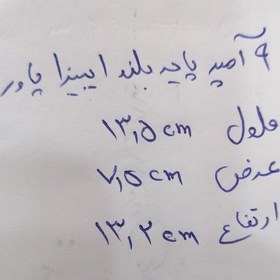 ۹ آمپر پایه بلند ایبیزا پاور
طول ۱۳٫۵ cm
عرض ۷٫۵ cm
ارتفاع ۱۳٫۲ cm